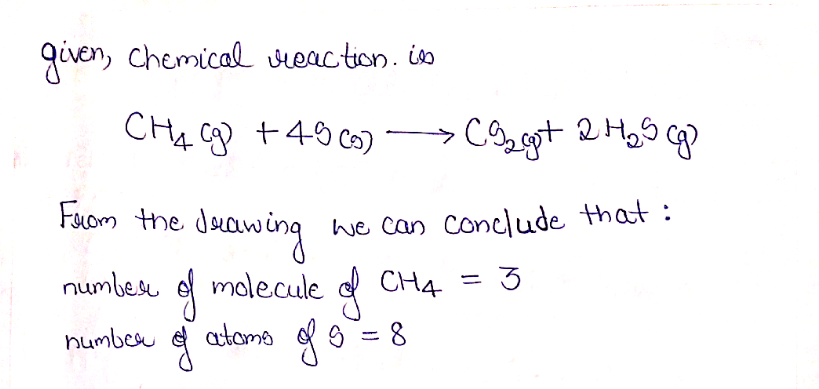 given, chemical reaction. is
CH₄ (g) + 4S (s) ⟶ CS₂ (g) + 2 H₂S (g)
From the drawing we can conclude that :
number of molecule of CH₄ = 3
number of atoms of S = 8